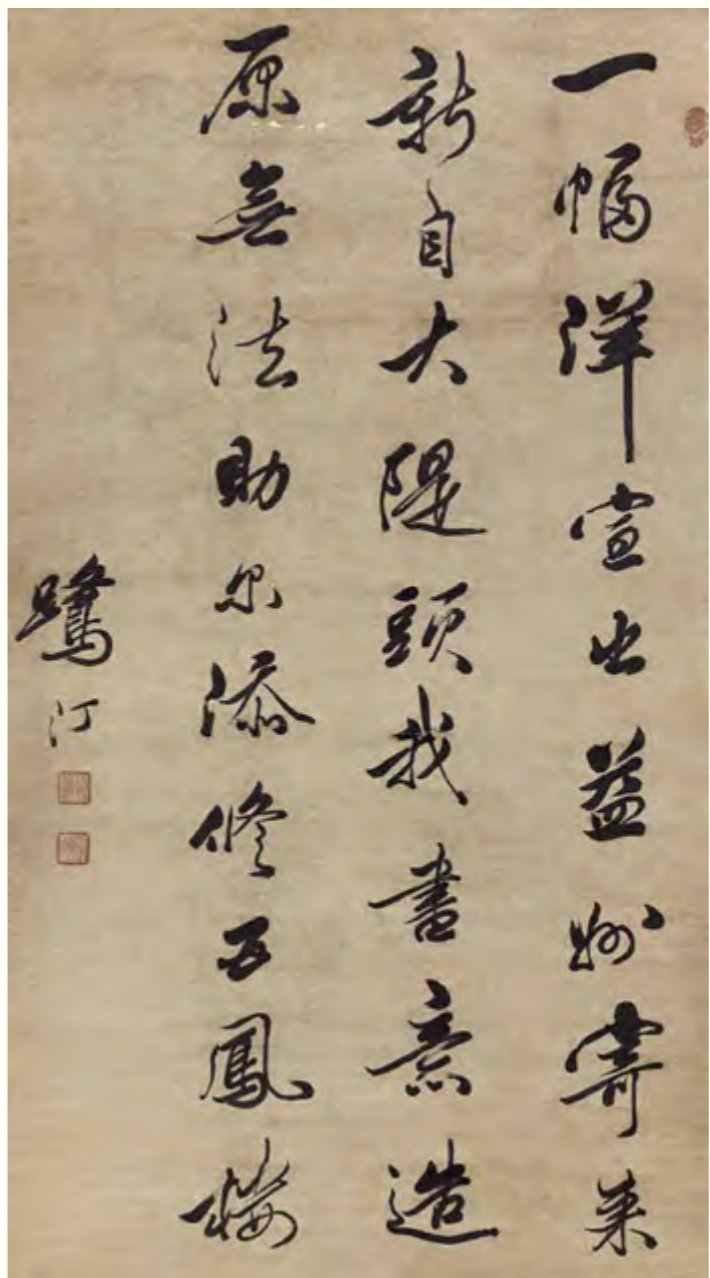 一幅洋宣出益州寄来
新自大隄頭我書意造
原無法助尔添修五鳳樓
鷺汀